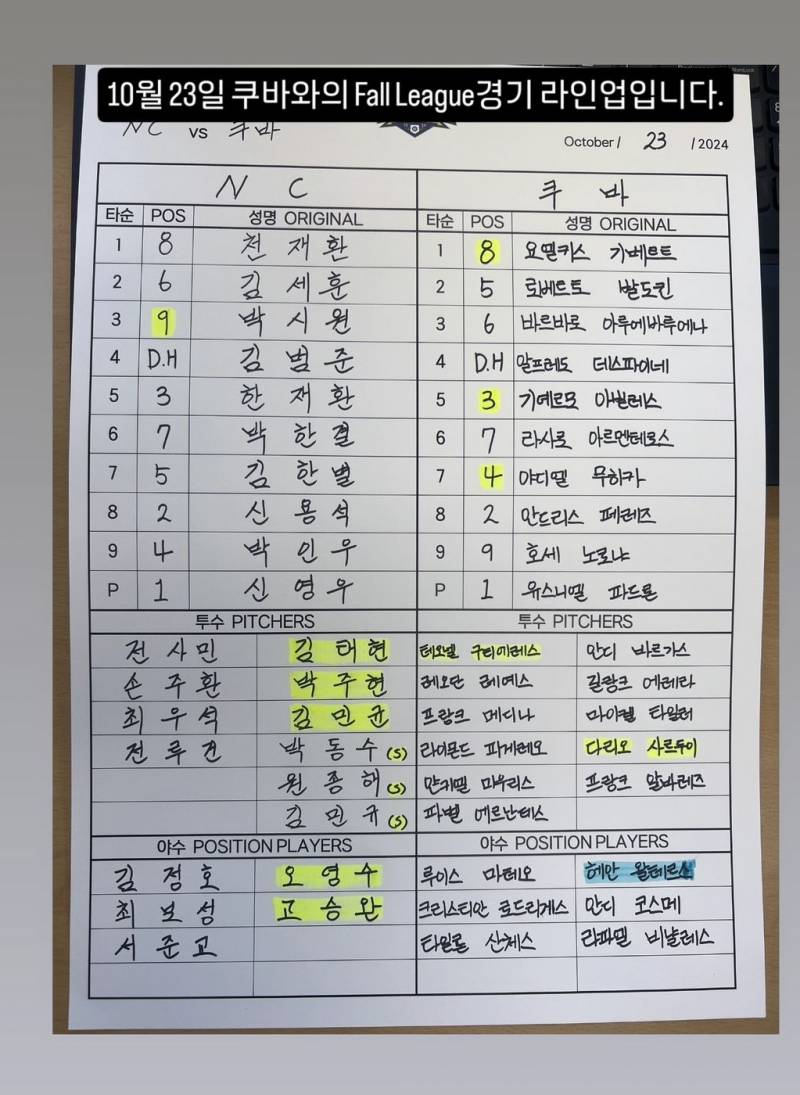 10월 23일 쿠바와의 Fall League경기 라인업입니다.
NC vs 쿠바
October/ 23 /2024
N C 쿠 바
타순 POS 성명 ORIGINAL 타순 POS 성명 ORIGINAL
1 8 천재환 1 8 요엘키스 기베르트
2 6 김세훈 2 5 로베르토 발도킨
3 9 박시원 3 6 바르바로 아루에바루에나
4 D.H 김범준 4 D.H 알프레도 데스파이네
5 3 한재환 5 3 기예르모 아빌레스
6 7 박한결 6 7 라사로 아르멘테로스
7 5 김한별 7 4 야디엘 무히카
8 2 신용석 8 2 안드리스 페레즈
9 4 박인우 9 9 호세 노로냐
P 1 신영우 P 1 유스니엘 파드론
투수 PITCHERS 투수 PITCHERS
전사민 김태현 테오넬 구티에레스 안디 바르가스
손주환 박주현 레오단 레예스 길랑크 에레라
최우석 김민균 프랑크 메디나 마이켈 타일러
전루건 박동수(S) 라이몬드 피게레오 다리오 사르두이
원종해(S) 얀키엘 마우리스 프랑크 알바레즈
김민규(S) 파벨 에르난데스
야수 POSITION PLAYERS 야수 POSITION PLAYERS
김정호 오영수 루이스 마테오 헤안 왈테르소
최보성 고승완 크리스티안 로드리게스 안디 코스메
서준교 타일론 산체스 라파엘 비냘레스